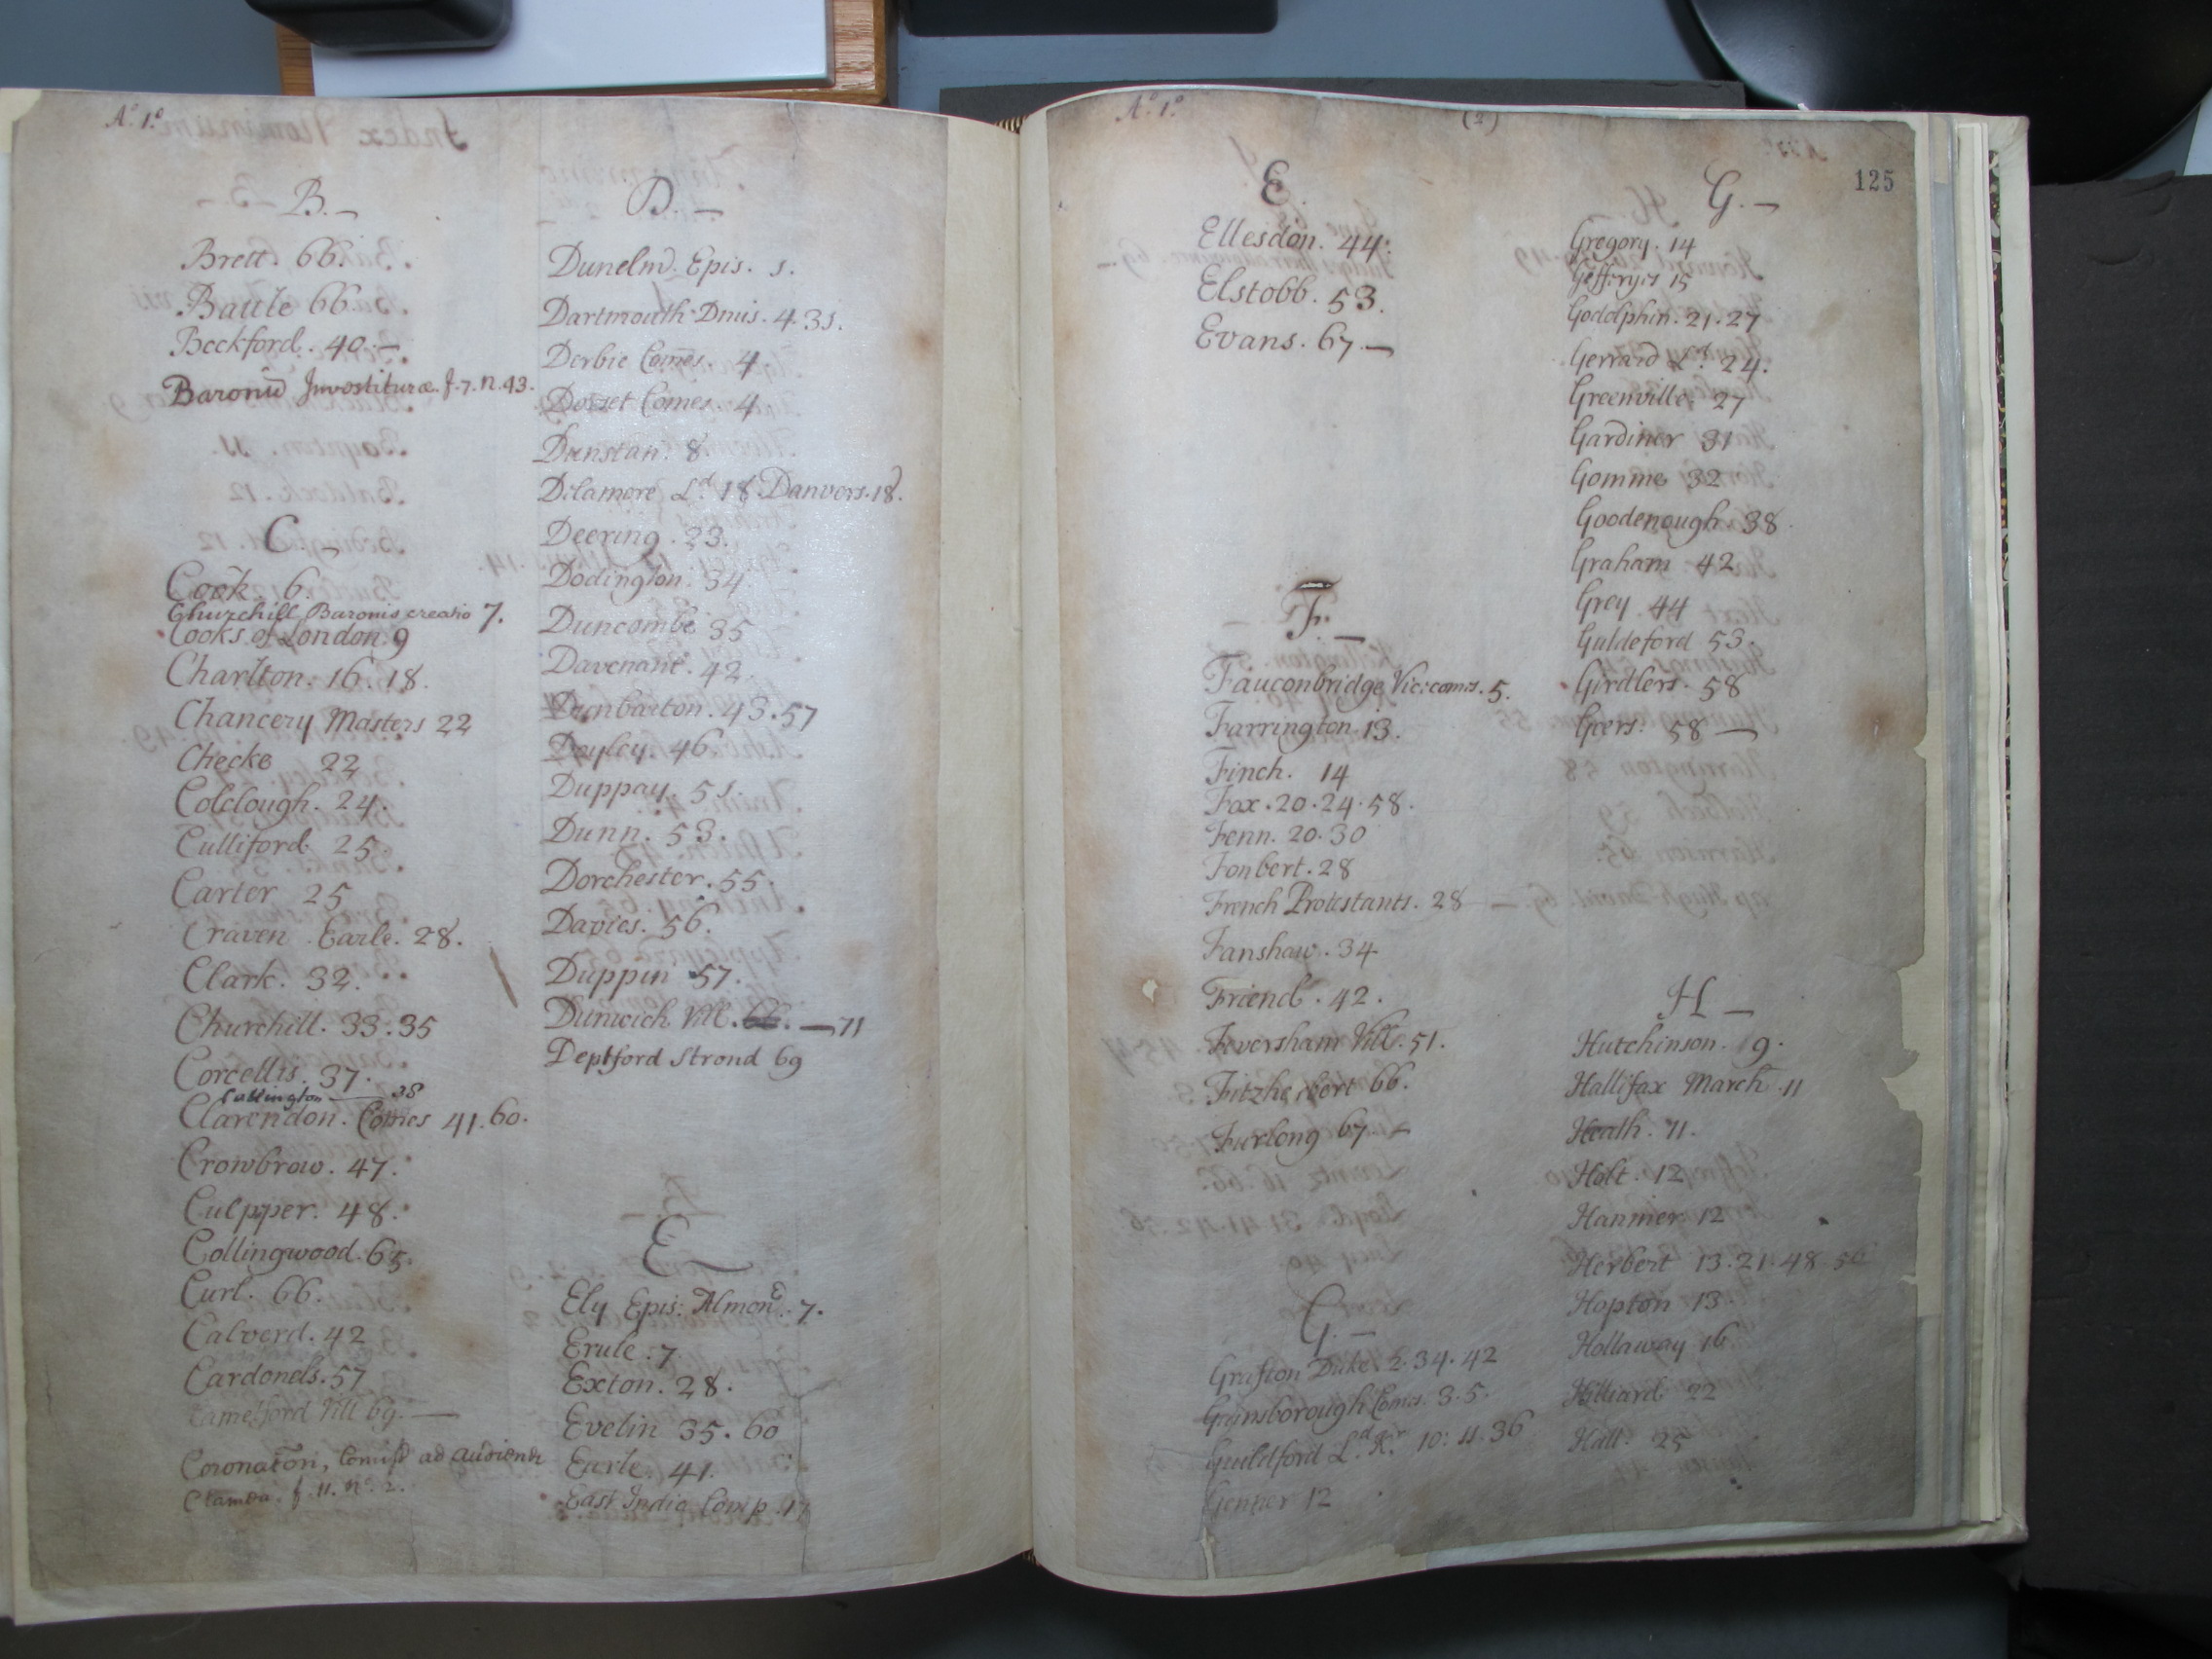 A.o 1.o
B. —
Brett. 66.
Battle 66.
Beckford. 40. —
Baronũ Investituræ. f. 7. n. 43.
C. —
Cook. 6.
Churchill Baronis creatio 7.
Cooks of London. 9
Charlton. 16. 18.
Chancery Masters 22
Cheeke 22
Colclough. 24.
Culliford. 25.
Carter 25
Craven Earle. 28.
Clark. 32.
Churchill. 33. 35
Corcellis. 37.
Cullington — 38
Clarendon. Comes 41. 60.
Crowbrow. 47.
Culpper. 48.
Collingwood. 65.
Curl. 66.
Calverd. 42
Cardonels. 57
Camelford Vill 69. —
Coronatori, Comiss ad audiend
Clamea. f. 11. no. 2.
D. —
Dunelm. Epis. 1.
Dartmouth Dmis. 4. 31.
Derbie Comes. 4
Dorset Comes. 4
Dunstan. 8
Delamore Ld. 18. Danvers. 18.
Deering. 23.
Dodington. 34
Duncombe 35
Davenant. 42.
Dunbarton. 43. 57
Doyley. 46.
Duppay. 51.
Dunn. 53.
Dorchester. 55.
Davies. 56.
Duppin 57.
Dunwich Vill. 66. — 71
Deptford Strond 69
E
Ely Epis: Almon. 7.
Erule. 7
Exton. 28.
Evelin 35. 60
Earle. 41.
East India Comp. 17
A.o 1.o
(2)
125
E.
Ellesdon. 44.
Elstobb. 53.
Evans. 67. —
F. —
Fauconbridge Vicecomes. 5.
Farrington. 13.
Finch. 14
Fox. 20. 24. 58.
Fenn. 20. 30
Fonbert. 28
French Protestants. 28 —
Fanshaw. 34
Friend. 42.
Feversham Vill. 51.
Fitzherbert 66.
Furlong 67. —
G. —
Grafton Duke. 2. 34. 42
Gainsborough Comes. 3. 5.
Guildford Ld. Kr. 10: 11. 36
Genner 12
G. —
Gregory. 14
Jefferyes 15
Godolphin. 21. 27
Gerrard Ld. 24.
Greenville. 27
Gardiner 31
Gomme 32
Goodenough 38.
Graham 42
Grey 44
Guldeford 53.
Girdlers. 58
Geers. 58 —
H —
Hutchinson. 9.
Hallifax March 11
Heath. 11.
Holt. 12
Hanmer 12
Herbert 13. 21. 48. 56
Hopton 13.
Hollaway 16
Hilliard 22
Hall. 25